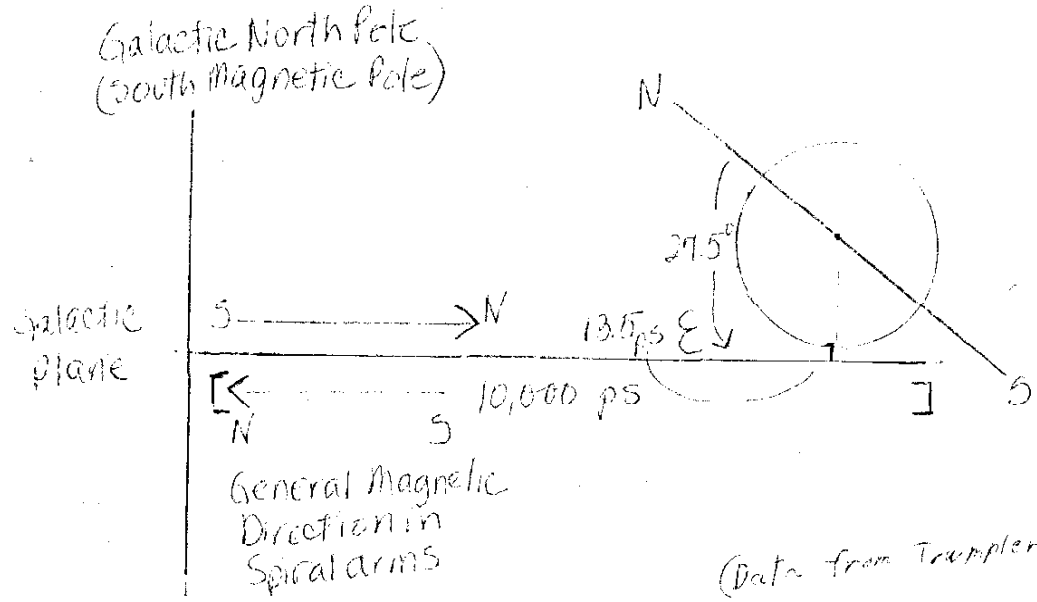 Galactic North Pole
(South Magnetic Pole)
N
27.5°
S N
Galactic
Plane
13.5 ps
10,000 ps
N S
S
General Magnetic
Direction in
Spiral arms
(Data from Trumpler